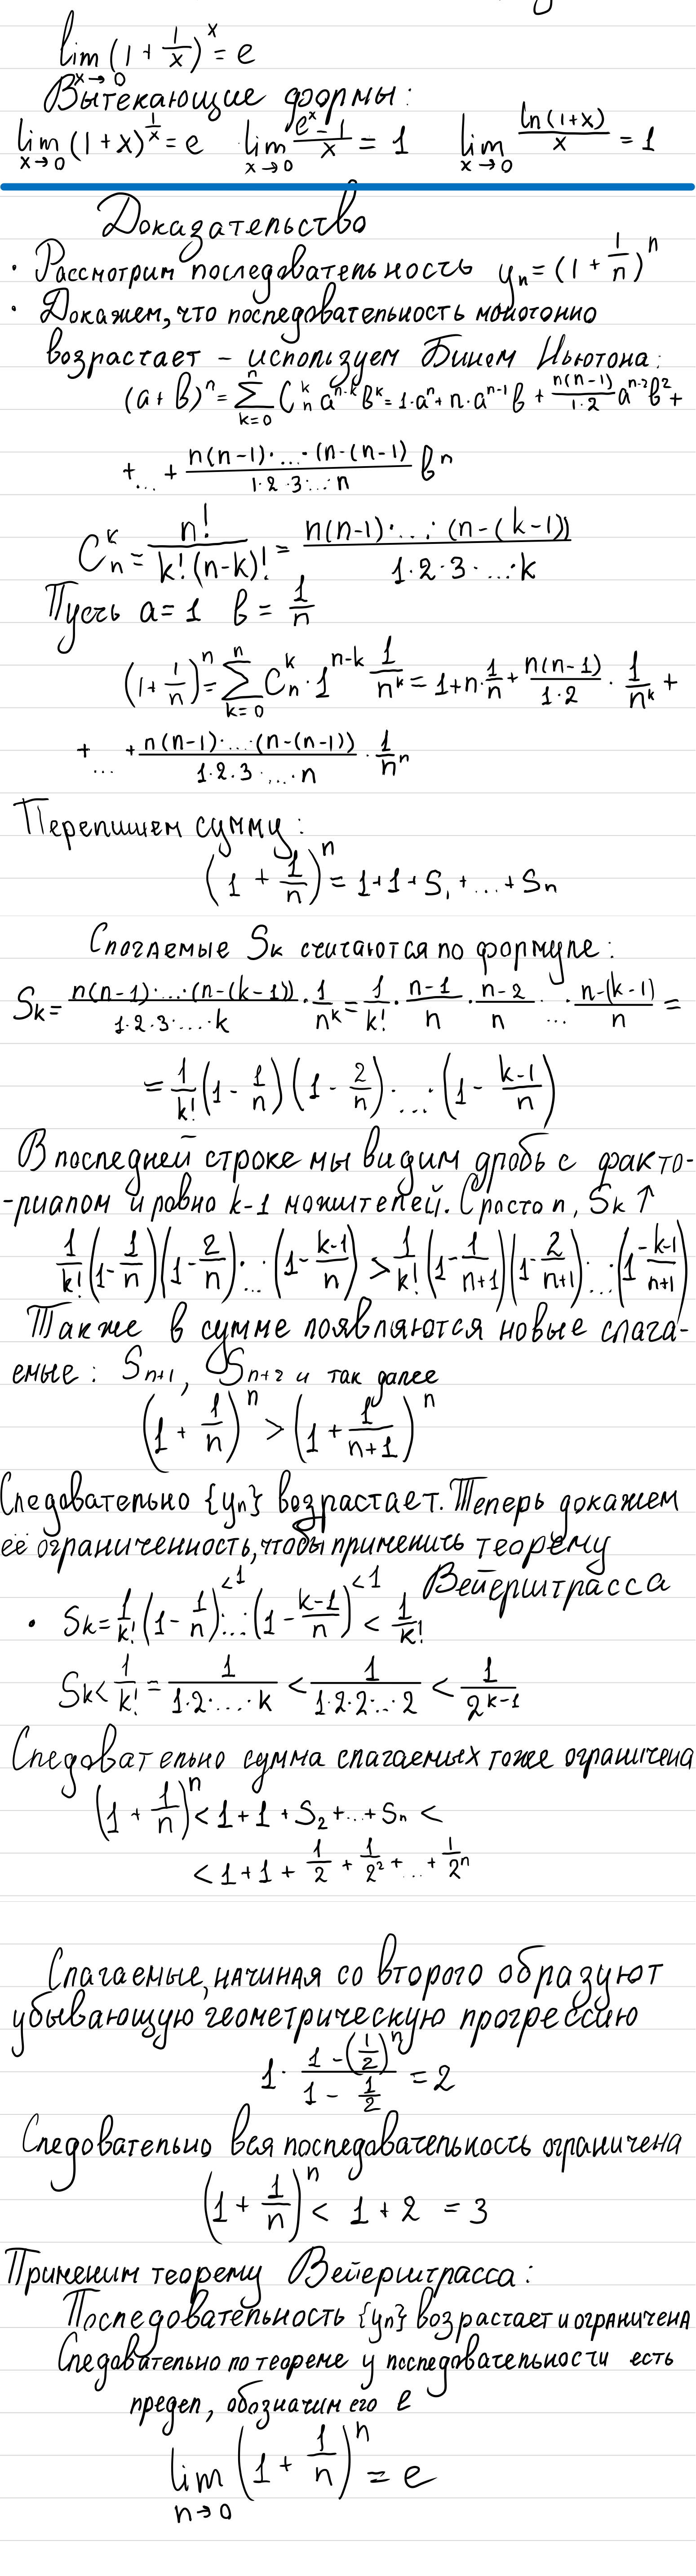 lim (1 + 1/x)^x = e
x→0
Вытекающие формы:
lim (1+x)^(1/x) = e   lim (e^x - 1)/x = 1   lim ln(1+x)/x = 1
x→0   x→0   x→0
Доказательство
· Рассмотрим последовательность yₙ = (1 + 1/n)^n
· Докажем, что последовательность монотонно
возрастает – используем Бином Ньютона:
(a + b)^n = ∑_{k=0}^{n} C_n^k a^(n-k) b^k = 1·a^n + n·a^(n-1) b + n(n-1)/(1·2) a^(n-2) b² +
+ ... + n(n-1)·...·(n-(n-1)/(1·2·3·...·n) b^n
C_n^k = n!/(k!(n-k)!) = n(n-1)·...·(n-(k-1))/(1·2·3·...·k)
Пусть a = 1 b = 1/n
(1 + 1/n)^n = ∑_{k=0}^{n} C_n^k · 1^(n-k) 1/n^k = 1 + n·1/n + n(n-1)/(1·2) · 1/n^k +
+ ... + n(n-1)·...·(n-(n-1))/(1·2·3·...·n) · 1/n^n
Перепишем сумму:
(1 + 1/n)^n = 1 + 1 + S₁ + ... + Sₙ
Слогаемые Sk считаются по формуле:
Sk = n(n-1)·...·(n-(k-1))/(1·2·3·...·k) · 1/n^k = 1/k! · (n-1)/n · (n-2)/n · ... · (n-(k-1))/n =
= 1/k! (1 - 1/n) (1 - 2/n) · ... · (1 - (k-1)/n)
В последней строке мы видим дробь с факто-
-риалом и ровно k-1 множителей. С росто n, Sk ↑
1/k! (1 - 1/n)(1 - 2/n) · ... · (1 - (k-1)/n) > 1/k! (1 - 1/(n+1))(1 - 2/(n+1)) · ... · (1 - (k-1)/(n+1))
Также в сумме появляются новые слага-
емые: Sₙ₊₁, Sₙ₊₂ и так далее
(1 + 1/n)^n > (1 + 1/(n+1))^n
Следовательно {yₙ} возрастает. Теперь докажем
её ограниченность, чтобы применить теорему
Вейерштрасса
· Sk = 1/k! (1 - 1/n)^{<1} · ... · (1 - (k-1)/n)^{<1} < 1/k!
Sk < 1/k! = 1/(1·2·...·k) < 1/(1·2·2·...·2) < 1/2^(k-1)
Следовательно сумма слагаемых тоже ограничена
(1 + 1/n)^n < 1 + 1 + S₂ + ... + Sₙ <
< 1 + 1 + 1/2 + 1/2² + ... + 1/2^n
Слагаемые, начиная со второго образуют
убывающую геометрическую прогрессию
1 · (1 - (1/2)^n)/(1 - 1/2) = 2
Следовательно вся последовательность ограничена
(1 + 1/n)^n < 1 + 2 = 3
Применим теорему Вейерштрасса:
Последовательность {yₙ} возрастает и ограничена
Следовательно по теореме у последовательности есть
предел, обозначим его e
lim (1 + 1/n)^n = e
n→0